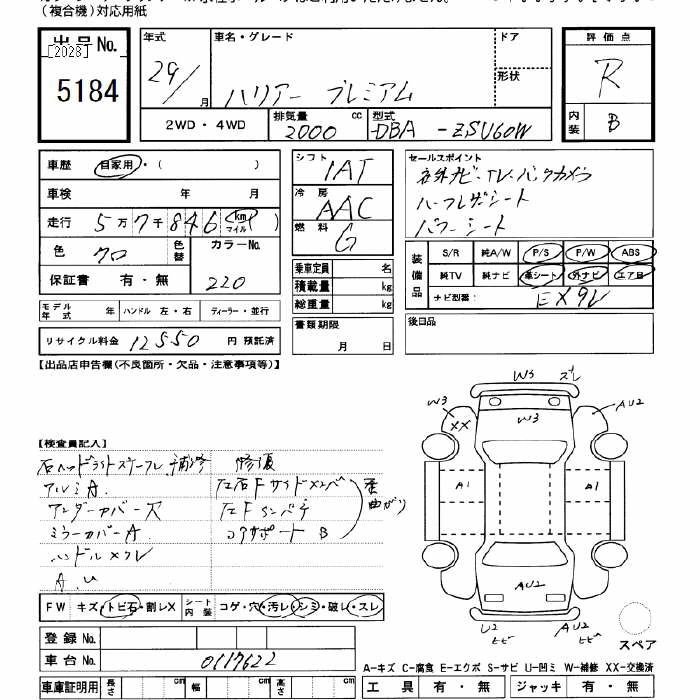 (複合機)対応用紙
出品No.
[2028]
5184
年式
29/
月
車名・グレード
ハリアー プレミアム
ドア
形状
2WD・4WD
排気量
2000
cc
型式
DBA -ZSU60W
評価点
R
内装
B
車歴 自家用・( )
車検 年 月
走行 5万7千846 km マイル ( )
色 クロ 色替 カラーNo.
保証書 有・無 220
シフト
IAT
冷房
AAC
燃料
G
乗車定員 名
積載量 kg
総重量 kg
セールスポイント
社外ナビ・TV・バックカメラ
ハーフレザーシート
パワーシート
装備品
S/R 純A/W P/S P/W ABS
純TV 純ナビ 革シート 外ナビ エアB
ナビ型番: EX9V
モデル年式 年 ハンドル 左・右 ディーラー・並行
リサイクル料金 12550 円 預託済
書類期限
月 日
後日品
【出品店申告欄(不良箇所・欠品・注意事項等)】
【検査員記入】
右ヘッドライトステーフレ 補修 修復
アルミA. 左右Fサイドメンバ
アンダーカバー欠 左Fインパネ
ミラーカバーA コアサポート B
歪 曲がり
ハンドルスレ
A.U
W3 ズレ
W3
XX
W3
AU2
A1
A1
AU2
U2
ヒビ
AU2
ヒビ
スペア
FW キズ・トビ石・割レX シート内装 コゲ・穴・汚レ・シミ・破レ・スレ
登録No.
車台No. 0117622
車庫証明用 長さ cm 幅 cm 高さ cm
A-キズ C-腐食 E-エクボ S-サビ U-凹ミ W-補修 XX-交換済
工具 有・無 ジャッキ 有・無